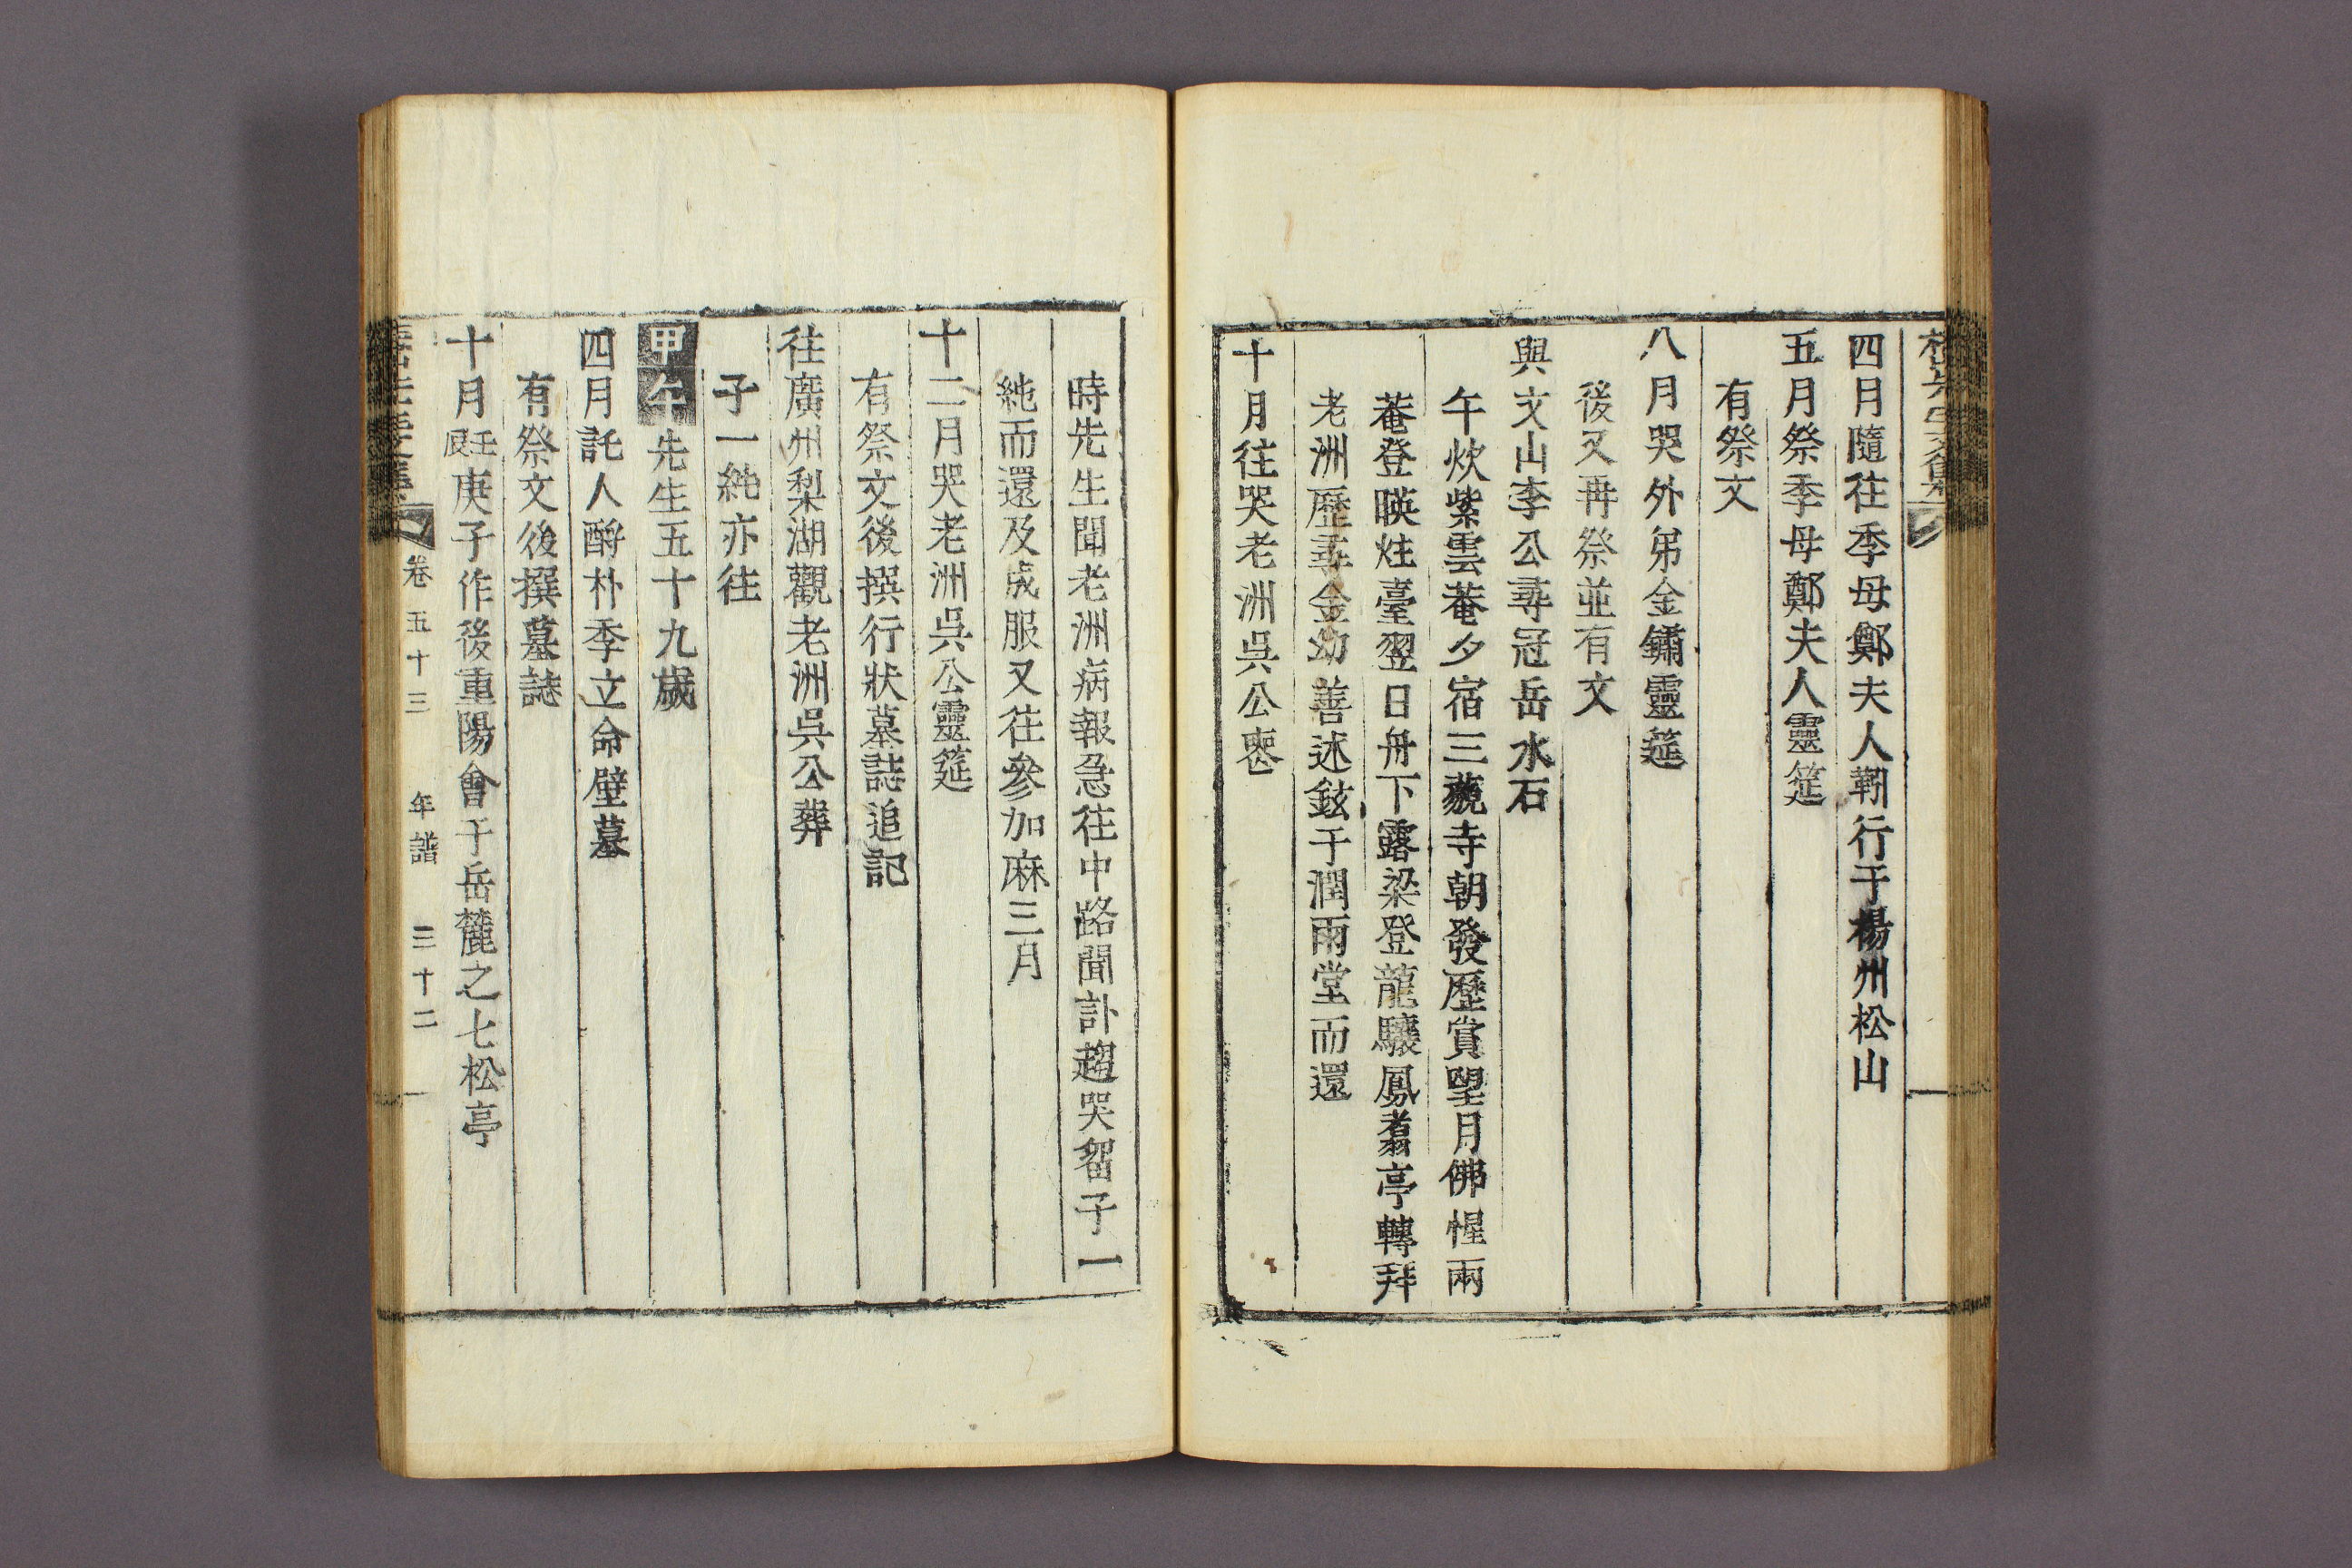 四月隨往季母鄭夫人靷行于楊州松山
五月祭季母鄭夫人靈筵
有祭文
八月哭外弟金鏞靈筵
後又再祭並有文
與文山李公尋冠岳水石
午炊紫雲菴夕宿三藐寺朝發歷賞望月佛惺兩
菴登暎炷臺翌日舟下露梁登龍驤鳳翥亭轉拜
老洲歷尋金幼善述鉉于潤雨堂而還
十月往哭老洲吳公喪
時先生聞老洲病報急往中路聞訃趨哭留子一
純而還及成服又往參加麻三月
十二月哭老洲吳公靈筵
有祭文後撰行狀墓誌追記
往廣州梨湖觀老洲吳公葬
子一純亦往
甲午先生五十九歲
四月託人酹朴季立命壁墓
有祭文後撰墓誌
十月壬辰庚子作後重陽會于岳麓之七松亭
卷五十三 年譜 三十二